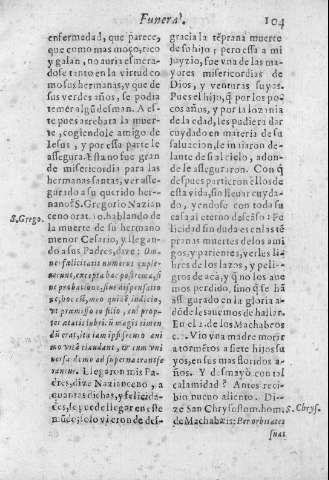 Funeral.
104
enfermedad, que parece,
que como mas moço, rico
y galan, no auria esmera-
dose tanto en la virtud co
mo sus hermanas, y que de
sus verdes años, se podia
temer algũ desman. A es-
te pues arrebata la muer-
te, cogiendole amigo de
Iesus, y por essa parte le
assegura. Esta no fue gran
de misericordia para las
hermanas santas, ver asse-
gurado a su querido her-
mano? S. Gregorio Nazian
S. Grego.
ceno orat. 10. hablando de
la muerte de su hermano
menor Cesario, y llegan-
do a sus Padres, dize: Om
ne felicitatis numeros exple-
uerunt, excepta hac postrema, si
ue probatione, siue dispensatio
ne, hoc est, meo quidẽ indicio,
vt præmisso eo filio, qui prop-
ter ætatis lubricũ magis timen
dũ erat, ita iam ipsi sereno ani
mo vitã claudant, & cum vni
uersa domo ad superna transfe
rantur. Llegaron mis Pa-
dres, dize Nazianceno, a
quantas dichas, y felicida-
des, se puede llegar en este
mũdo; solo vieron de des-
gracia la tẽprana muerte
de su hijo; pero essa a mi
juyzio, fue vna de las ma-
yores misericordias de
Dios, y venturas suyas.
Pues el hijo, q̃ por los po-
cos años, y por la loçania
de la edad, les pudiera dar
cuydado en materia de su
saluacion, le imbiaron de-
lante de si al cielo, adon-
de le asseguraron. Con q̃
despues partieron ellos de
esta vida, sin lleuar cuyda-
do, yendose con toda su
casa al eterno descãso: Fe
licidad sin duda es en las tẽ
pranas muertes de los ami
gos, y parientes, verles li-
bres de los lazos, y peli-
gros de acà, y q̃ no los he-
mos perdido, sino q̃ se hã
assegurado en la gloria a-
dõde los auemos de hallar.
En el 2. de los Machabros
c. 7. Vio vna madre morir
a tormẽtos a siete hijos su
yos, en sus mas floridos a-
ños. Y desmayò con tal
calamidad? Antes reci-
bio nueuo aliento. Di-
ze San Chrysostom. hom.
S. Chrys.
de Machabæis: Per orbitates
suas